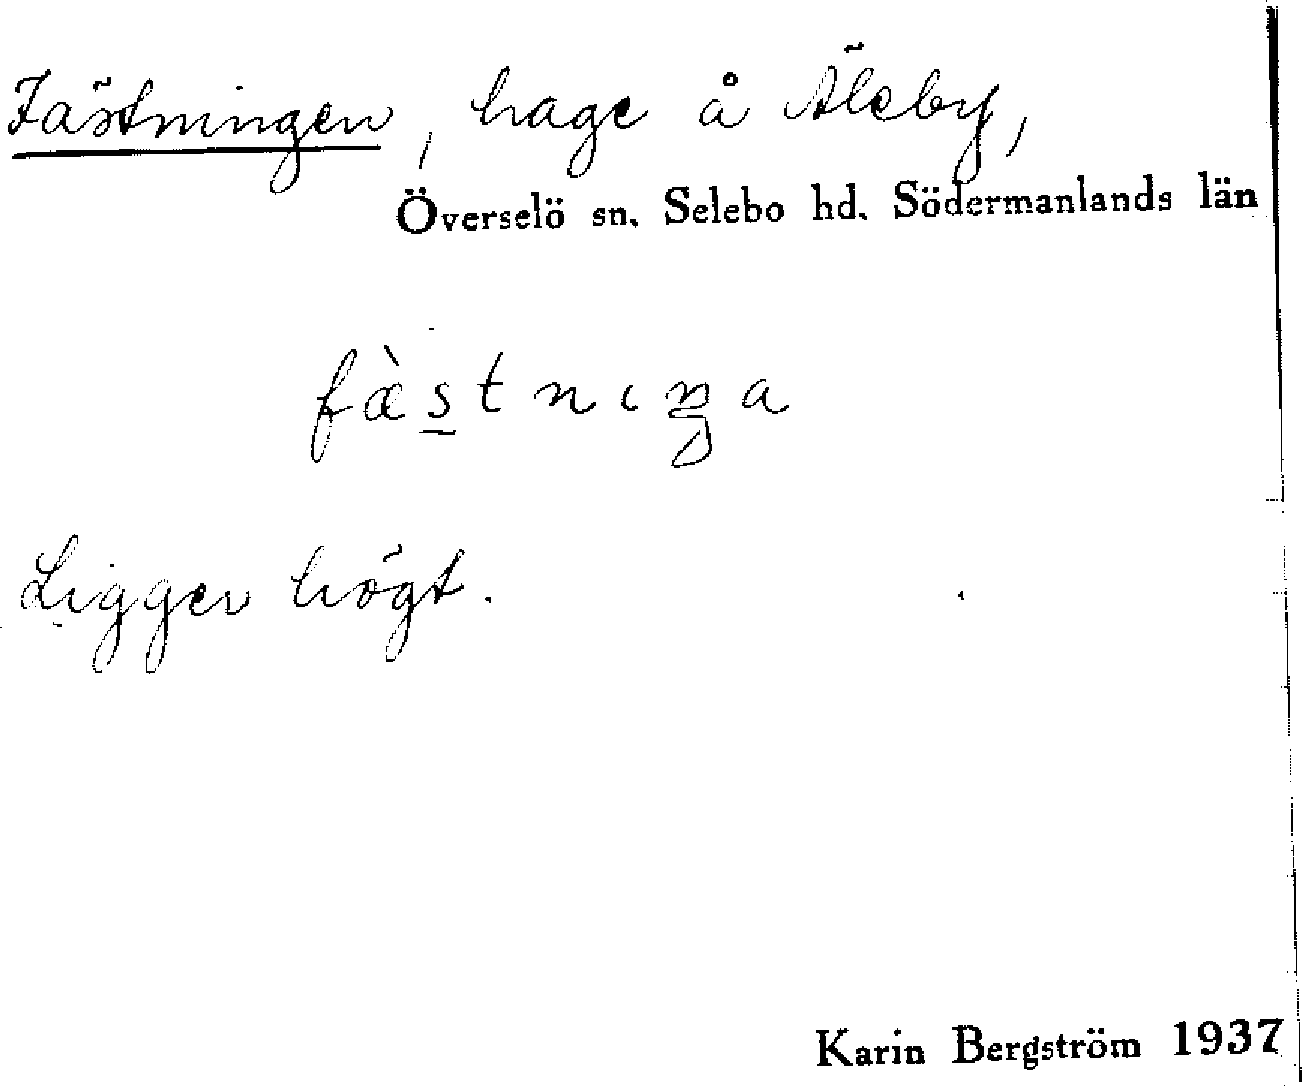 Fästningen, hage å Äleby,
Överselö sn. Selebo hd. Södermanlands län
fæ̀s̲tnıŋa
Ligger högt.
Karin Bergström 1937